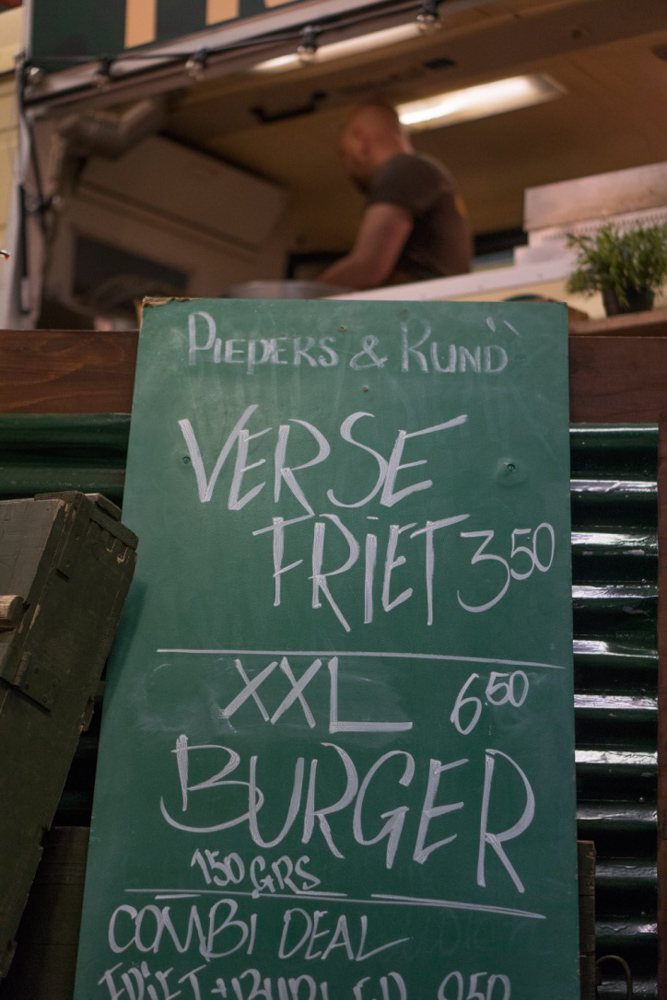 PIEPERS & RUND
VERSE
FRIET 3,50
XXL 6,50
BURGER
150 GRS
COMBI DEAL